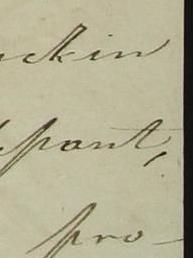 uckin
pant,
pro-